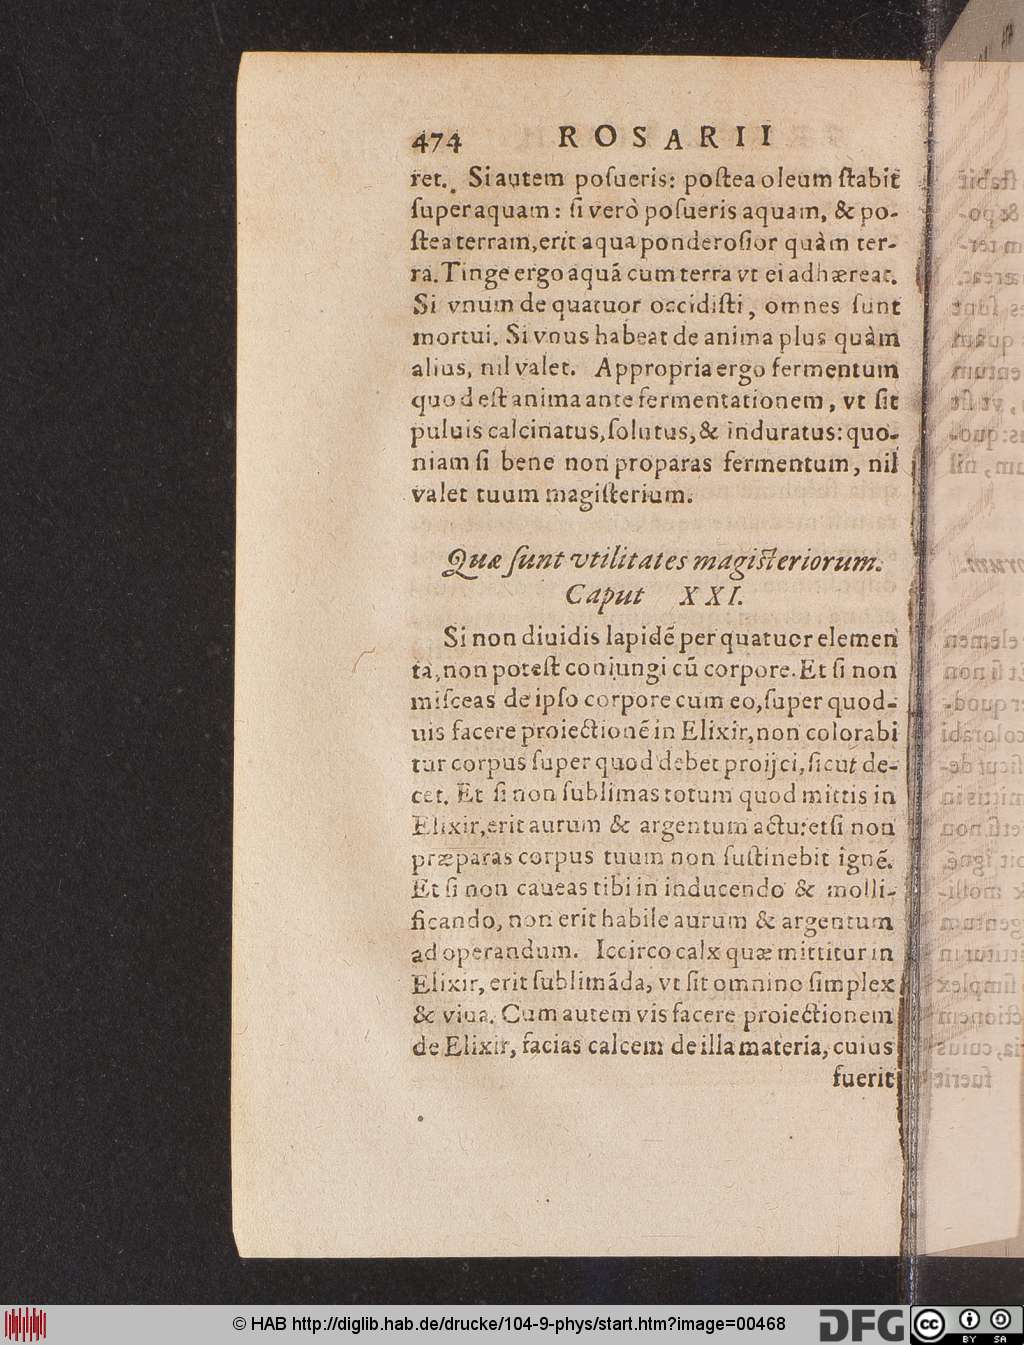 474 ROSARII
ret. Si autem poſueris: poſtea oleum ſtabit
ſuper aquam: ſi verò poſueris aquam, & po-
ſtea terram, erit aqua ponderoſior quàm ter-
ra. Tinge ergo aquã cum terra vt ei adhæreat.
Si vnum de quatuor occidiſti, omnes ſunt
mortui. Si vnus habeat de anima plus quàm
alius, nil valet. Appropria ergo fermentum
quod eſt anima ante fermentationem, vt ſit
puluis calcinatus, ſolutus, & induratus: quo-
niam ſi bene non proparas fermentum, nil
valet tuum magiſterium.
Quæ ſunt vtilitates magiſteriorum.
Caput XXI.
Si non diuidis lapidẽ per quatuor elemen
ta, non poteſt coniungi cũ corpore. Et ſi non
miſceas de ipſo corpore cum eo, ſuper quod-
uis facere proiectionẽ in Elixir, non colorabi
tur corpus ſuper quod debet proijci, ſicut de-
cet. Et ſi non ſublimas totum quod mittis in
Elixir, erit aurum & argentum actu: etſi non
præparas corpus tuum non ſuſtinebit ignẽ.
Et ſi non caueas tibi in inducendo & molli-
ficando, non erit habile aurum & argentum
ad operandum. Iccirco calx quæ mittitur in
Elixir, erit ſublimãda, vt ſit omnino ſimplex
& viua. Cum autem vis facere proiectionem
de Elixir, facias calcem de illa materia, cuius
fuerit
© HAB http://diglib.hab.de/drucke/104-9-phys/start.htm?image=00468
DFG
cc BY SA